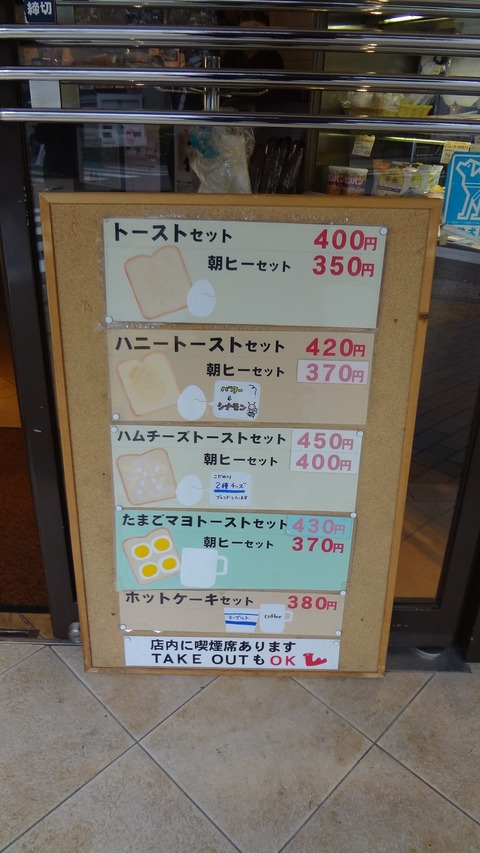 締切
トーストセット 400円
朝ヒーセット 350円
ハニートーストセット 420円
朝ヒーセット 370円
バター
&
シナモン
ハムチーズトーストセット 450円
朝ヒーセット 400円
こだわり
2種チーズ
ブレンドしています
たまごマヨトーストセット 430円
朝ヒーセット 370円
ホットケーキセット 380円
ヨーグルト
coffee
店内に喫煙席あります
TAKE OUTも OK